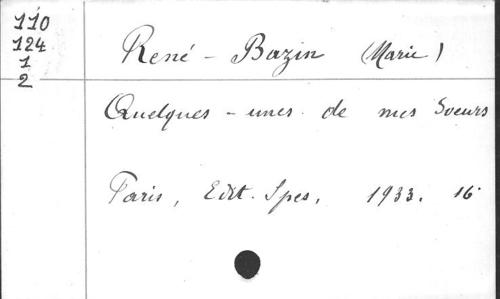 110
124
1
2
René - Bazin (Marie)
Quelques - unes de mes Soeurs
Paris, Edit. Spes, 1933. 16°